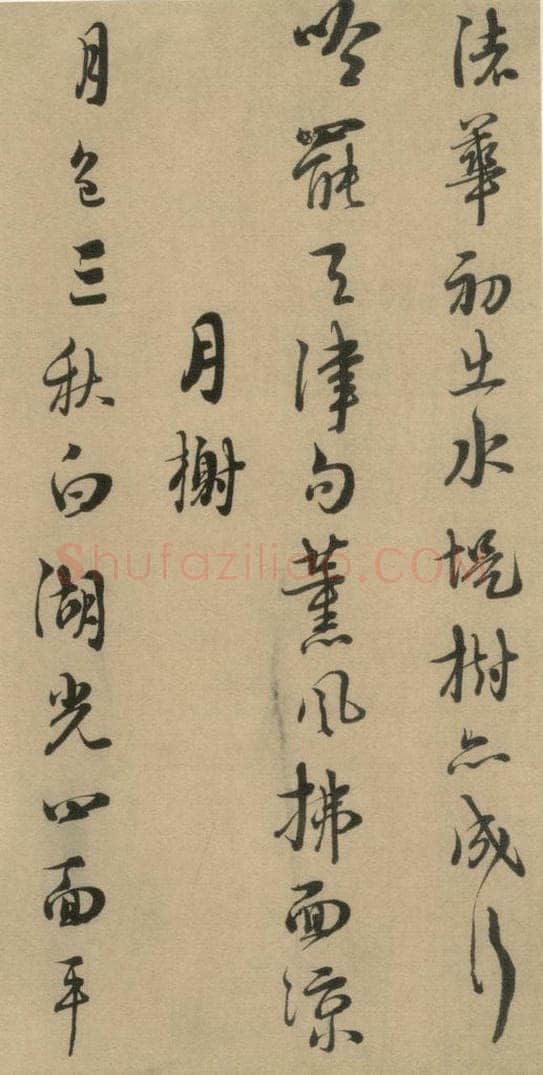 渚華初出水堤樹亦成行
吟罷天津句薰風拂面涼
月榭
月色三秋白湖光四面平
Shufaziliao.COM